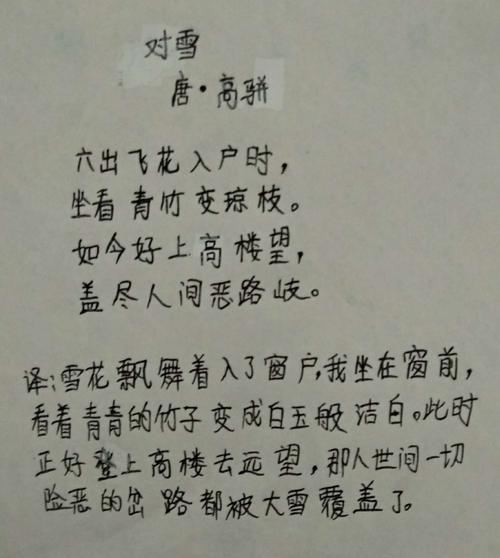 对雪
唐·高骈
六出飞花入户时，
坐看青竹变琼枝。
如今好上高楼望，
盖尽人间恶路岐。
译：雪花飘舞着入了窗户，我坐在窗前，
看着青青的竹子变成白玉般洁白。此时
正好登上高楼去远望，那人世间一切
险恶的岔路都被大雪覆盖了。